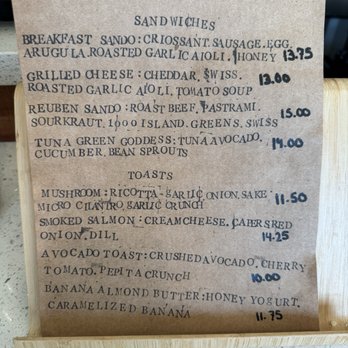 SANDWICHES
BREAKFAST SANDO: CRIOSSANT. SAUSAGE. EGG.
ARUGULA. ROASTED GARLIC AIOLI. HONEY 13.75
GRILLED CHEESE: CHEDDAR. SWISS. 13.00
ROASTED GARLIC AIOLI. TOMATO SOUP
REUBEN SANDO: ROAST BEEF, PASTRAMI. 15.00
SOURKRAUT. 1000 ISLAND. GREENS. SWISS
TUNA GREEN GODDESS: TUNA AVOCADO. 14.00
CUCUMBER. BEAN SPROUTS
TOASTS
MUSHROOM: RICOTTA. GARLIC ONION. SAKE. 11.50
MICRO CILANTRO. GARLIC CRUNCH
SMOKED SALMON: CREAMCHEESE. CAPERS RED
ONION. DILL 14.25
AVOCADO TOAST: CRUSHED AVOCADO. CHERRY
TOMATO. PEPITA CRUNCH 10.00
BANANA ALMOND BUTTER: HONEY YOGURT.
CARAMELIZED BANANA 11.75